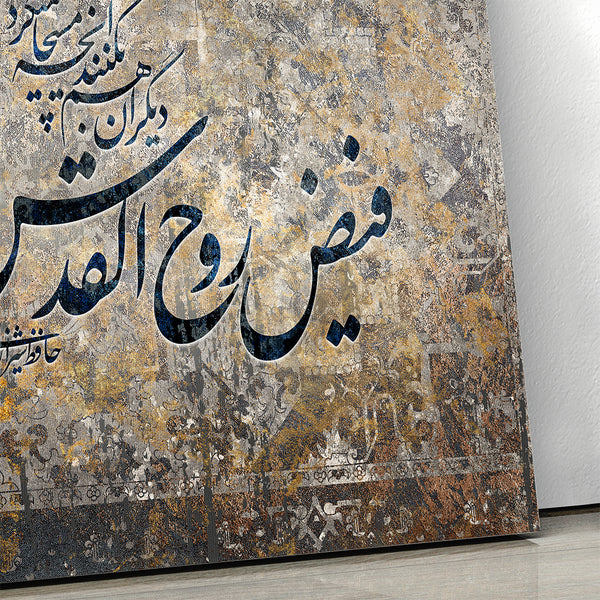 فیض روح القدس
دیگران هم
بکنند آنچه
مسیحا میکرد
حافظ شیراز